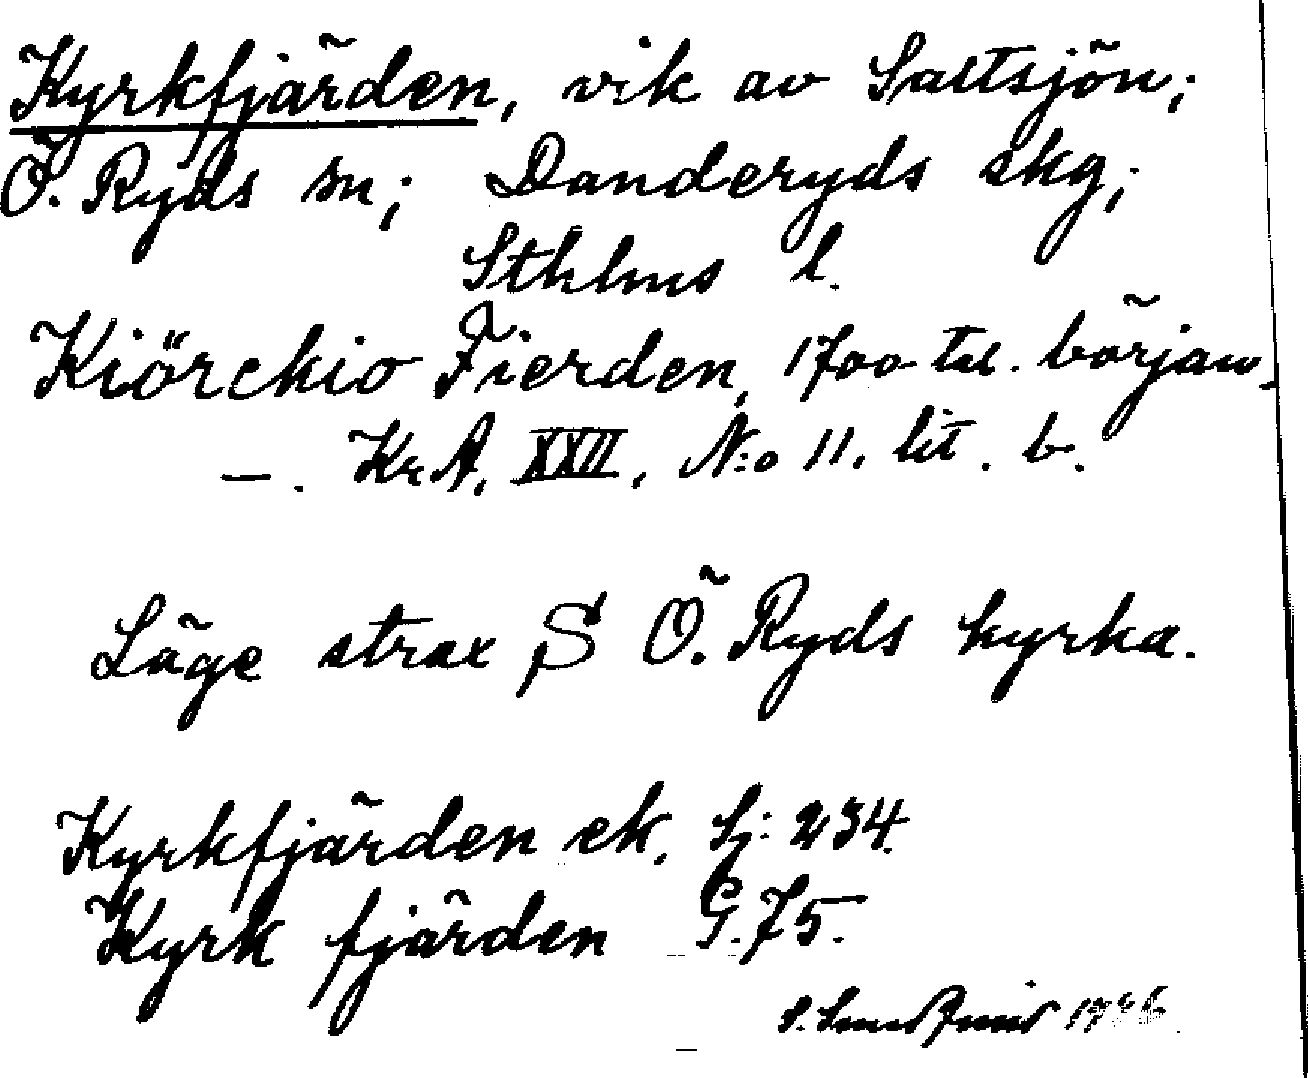 Kyrkfjärden, vik av Saltsjön;
Ö. Ryds sn; Danderyds skg;
Sthlms l.
Kiörckio Fierden, 1700-tal. början
—. KrA, XXII, N:o 11. lit. b.
Läge strax S Ö. Ryds kyrka.
Kyrkfjärden ek. bj: 234.
Kyrk fjärden G. 75.
S.